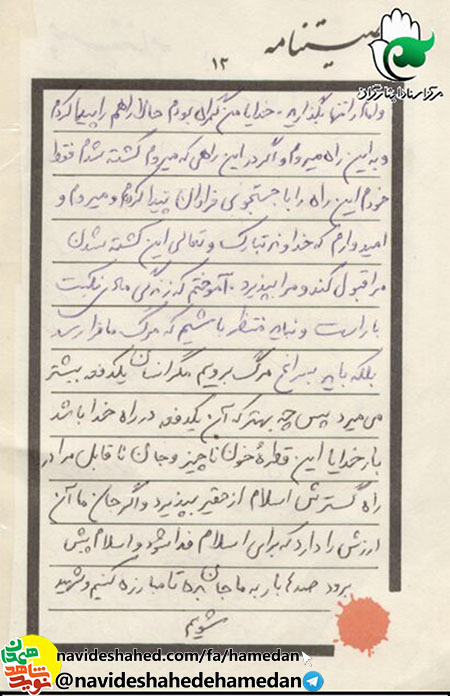 وصیتنامه
۱۲
مرکز اسناد ایثارگران
و امام را تنها نگذارید. خدایا من گمراه بودم حال راهم را پیدا کردم
و به این راه میروم و اگر در این راهی که میروم کشته شدم فقط
خودم این راه را با جستجوی فراوان پیدا کردم و میروم و
امیدوارم که خداوند تبارک و تعالی این کشته شدن
مرا قبول کند و مرا بپذیرد. آموختم که زندگی مادی نکبت
بار است و نباید منتظر باشیم که مرگ ما فرا رسد
بلکه باید بسراغ مرگ برویم مگر انسان یکدفعه بیشتر
می میرد پس چه بهتر که آن یکدفعه در راه خدا باشد
بار خدایا این قطرهٔ خون ناچیز و جان ناقابل مرا در
راه گسترش اسلام از حقیر بپذیرد و اگر جان ما آن
ارزش را دارد که برای اسلام فدا شود و اسلام پیش
برود صدها بار به ما جان بده تا مبارزه کنیم و شهید
شویم
نوید شاهد همدان
navideshahed.com/fa/hamedan
@navideshahedehamedan